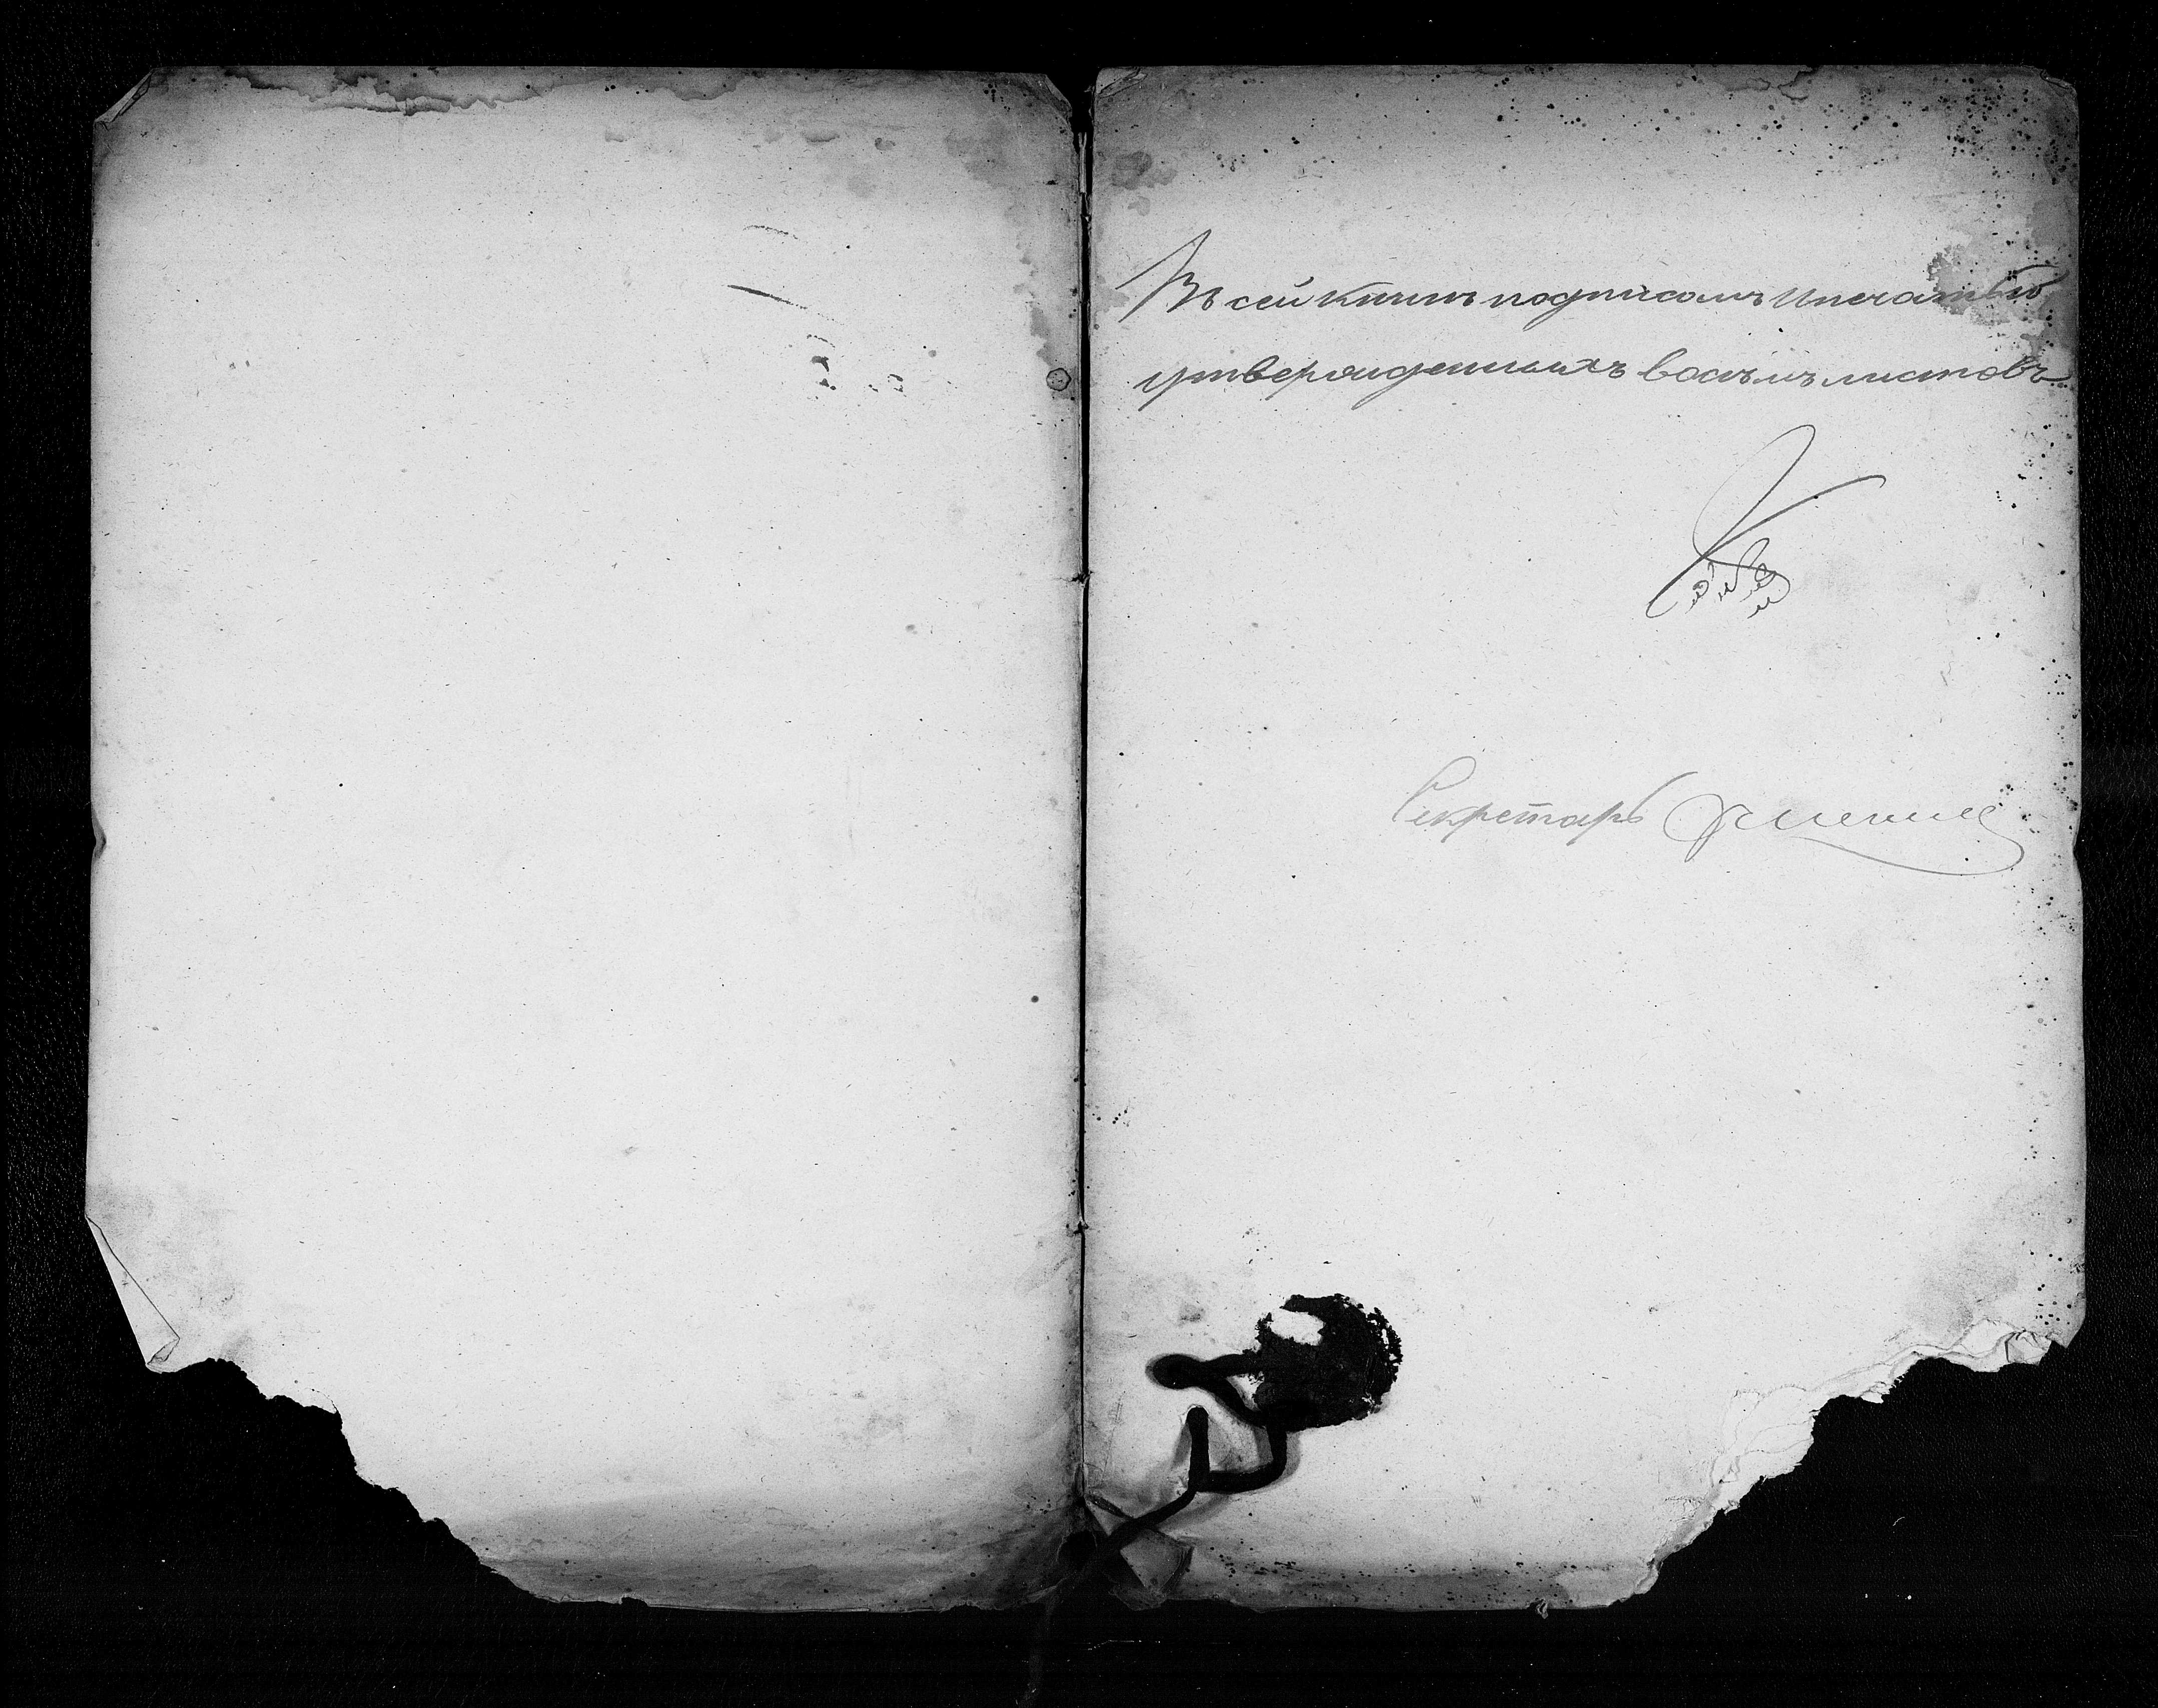 Въ сей книге подписомъ и печатью
утвержденныхъ восъмъ листовъ
Секретарь